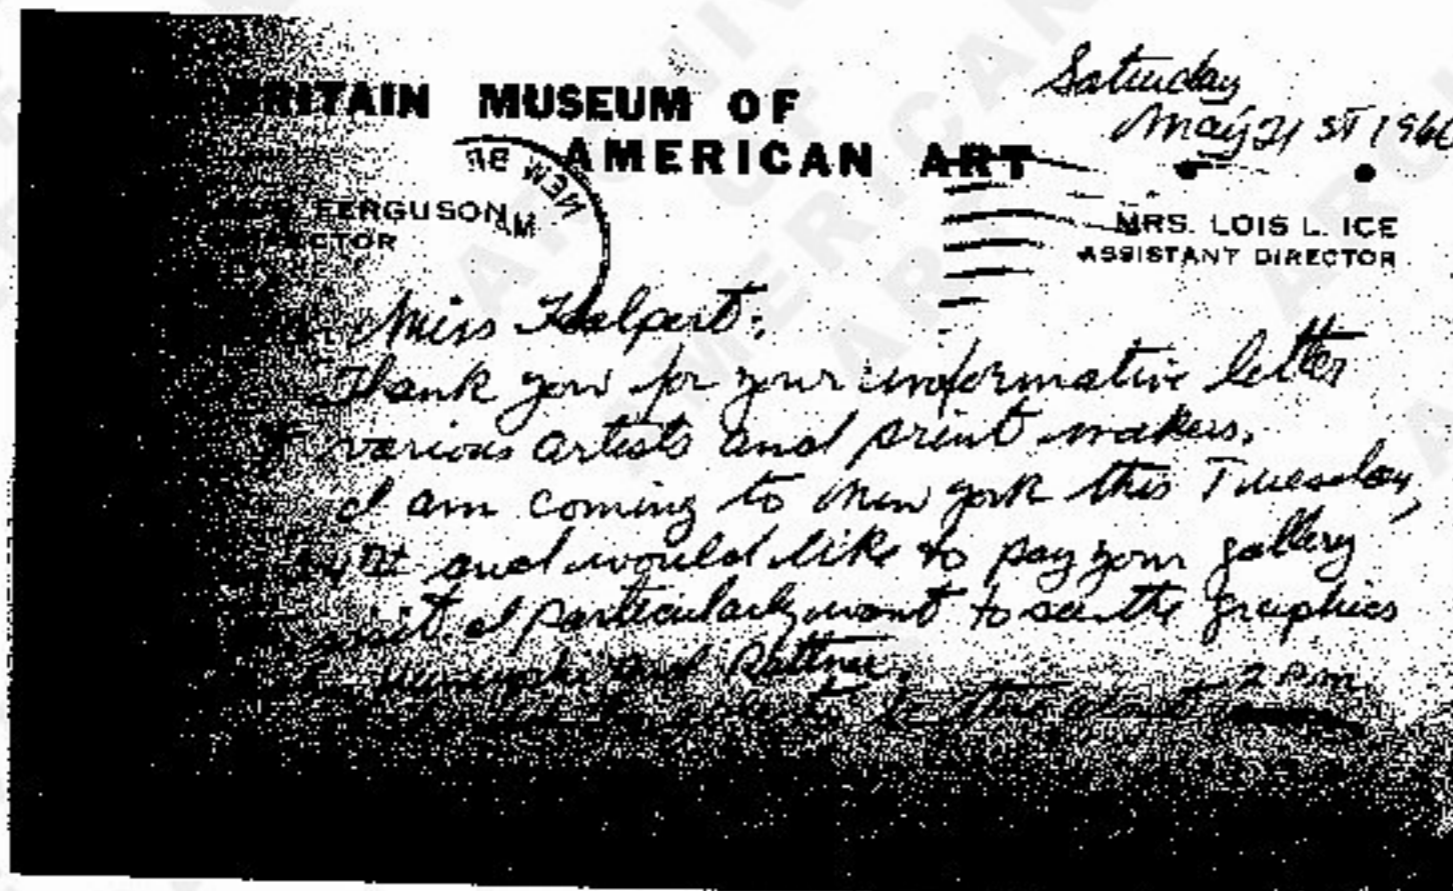 Saturday
May 21 ST 196
BRITAIN MUSEUM OF
AMERICAN ART
FERGUSON
MRS. LOIS L. ICE
ASSISTANT DIRECTOR
NEW
Miss Halpert:
Thank you for your informative letter
various artists and print makers.
I am coming to New York this Tuesday,
and would like to pay your gallery
visit. I particularly want to see the graphics
and Rattner.
to be there about 2 PM